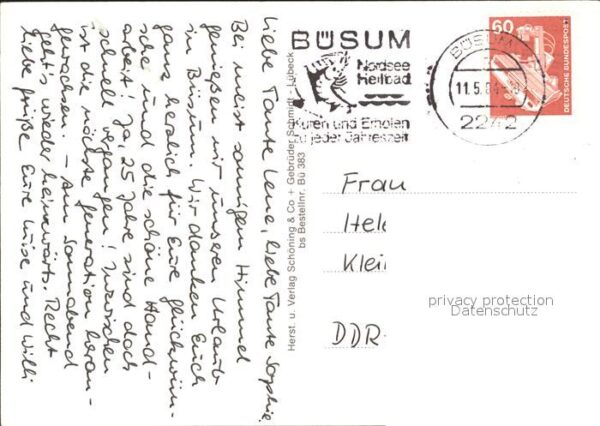 Liebe Tante Lena, liebe Tante Sophie
Bei meist sonnigem Himmel
genießen wir unseren Urlaub
in Büsum. Wir danken Euch
ganz herzlich für Eure Glückwün-
sche und die schöne Hand-
arbeit. Ja, 25 Jahre sind doch
schnell vergangen! Inzwischen
ist die nächste Generation heran-
gewachsen. – Am Sonnabend
geht's wieder heimwärts. Recht
liebe Grüße Eure Luise und Willi
Herst. u. Verlag Schöning & Co + Gebrüder Schmidt - Lübeck
bs Bestellnr. Bü 383
BÜSUM
Nordsee
Heilbad
Kuren und Erholen
zu jeder Jahreszeit
BÜSUM
11.5.84
2242
60
DEUTSCHE BUNDESPOST
Frau
Hele
Klei
DDR-
privacy protection
Datenschutz